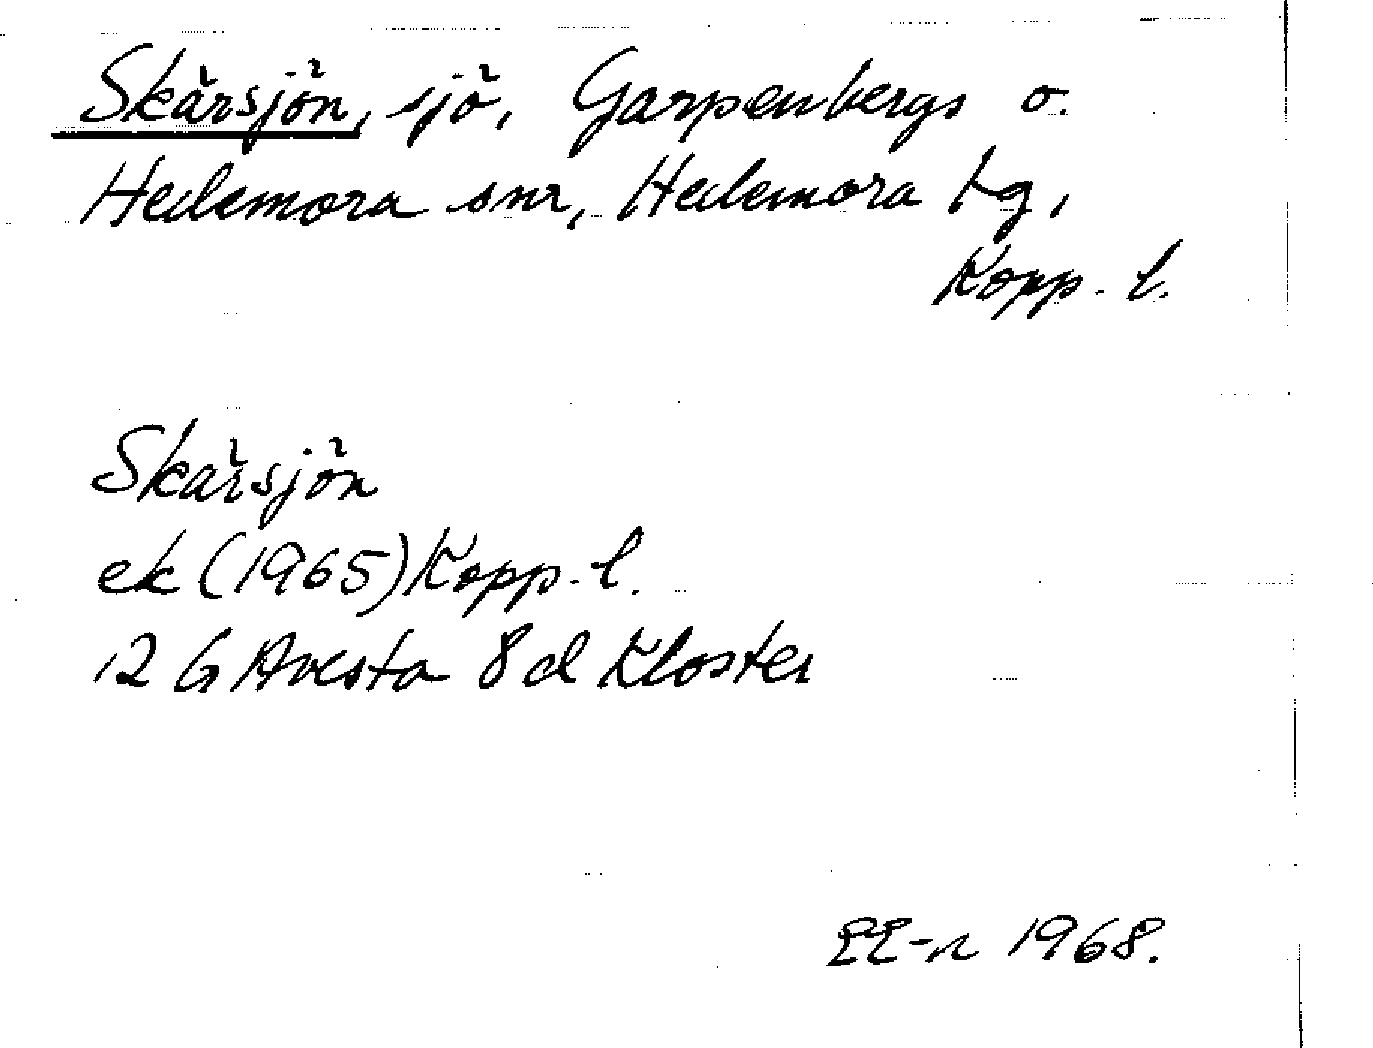 Skärsjön, sjö, Garpenbergs o.
Hedemora snr, Hedemora tg,
Kopp. l.
Skärsjön
ek (1965) Kopp. l.
12 G Avesta 8 d Kloster
EE-n 1968.